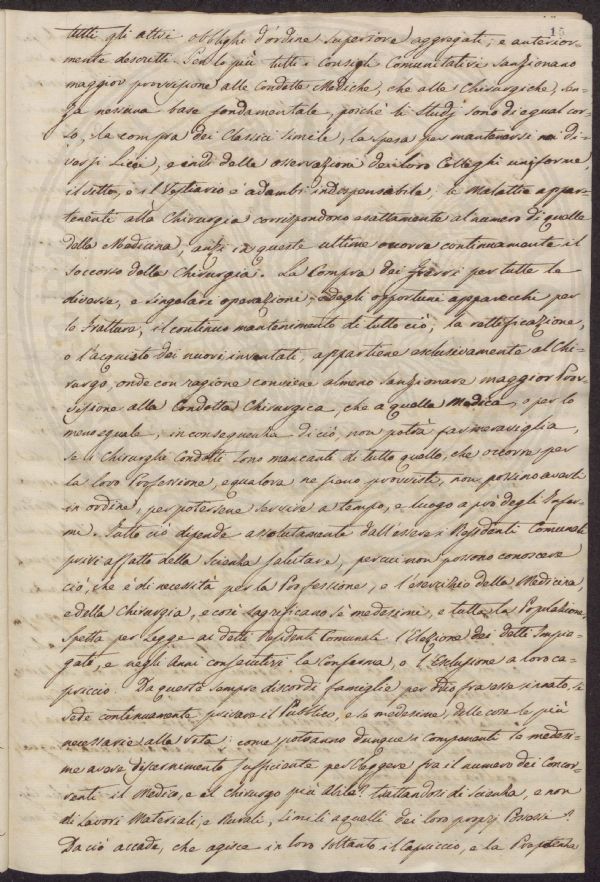 15
tutti gli altri obblighi d'ordine superiore aggregati, e anterior-
mente descritti. Per lo più tutti i Consigli Comunitativi sanzionano
maggior provvisione alle Condotte Mediche, che alle Chirurgiche, sen-
za nessuna base fondamentale, poichè li Studj sono di egual cor-
so, la compra dei Classici simile, la spesa per mantenersi nei di-
versi Licei, e indi delle osservazioni dei loro Colleghi uniforme,
il vitto, e il Vestiario è ad ambi indispensabile; le Malattie appar-
tenenti alla Chirurgia corrispondono esattamente al numero di quelle
della Medicina, anzi in queste ultime occorre continuamente il
soccorso della Chirurgia. La Compra dei ferri per tutte le
diverse, e singolari operazioni, e degli opportuni apparecchi per
le fratture, il continuo mantenimento di tutto ciò, la rettificazione,
o l'acquisto dei nuovi inventati, appartiene esclusivamente al Chi-
rurgo, onde con ragione conviene almeno sanzionare maggior Prov-
visione alla Condotta Chirurgica, che a quella Medica, o per lo
meno eguale; in conseguenza di ciò, non potrà far meraviglia,
se i Chirurghi Condotti sono mancanti di tutto quello, che occorre per
la loro Professione, e qualora ne siano provvisti, non possino averli
in ordine, per potersene servire a tempo, e luogo a prò degli Infer-
mi. Tutto ciò dipende assolutamente dall'essere i Residenti Comunali
privi affatto della Scienza salutare, per cui non possono conoscere
ciò, che è di necessità per la Professione, e l'esercizio della Medicina,
e della Chirurgia, e così sagrificano sè medesimi, e tutta la Popolazione.
Spetta per Legge ai detti Residenti Comunali l'Elezione dei detti Impie-
gati, e negli Anni consecutivi la Conferma, o l'Esclusione a loro ca-
priccio. Da queste sempre discordi famiglie per odio fra esse innato, si
vede continuamente privare il Pubblico, e le medesime, delle cose le più
necessarie alla vita: come potranno dunque i componenti le medesi-
me avere discernimento sufficiente per eleggere fra il numero dei Concor-
renti il Medico, e il Chirurgo più abile? trattandosi di Scienza, e non
di lavori Materiali, e Rurali, simili a quelli dei loro proprj Possessi?
Da ciò accade, che agisce in loro soltanto il Capriccio, e la Prepotenza